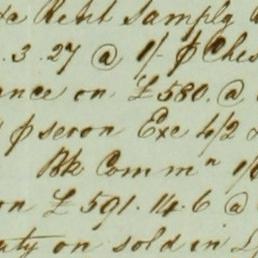 Rent Samplg
. 3. 27 @ 1/- ⅌ Ches
ance on £580. @
⅌ seron Exc 4/2
Bk Commn
on £591.14.6 @
uty on sold in